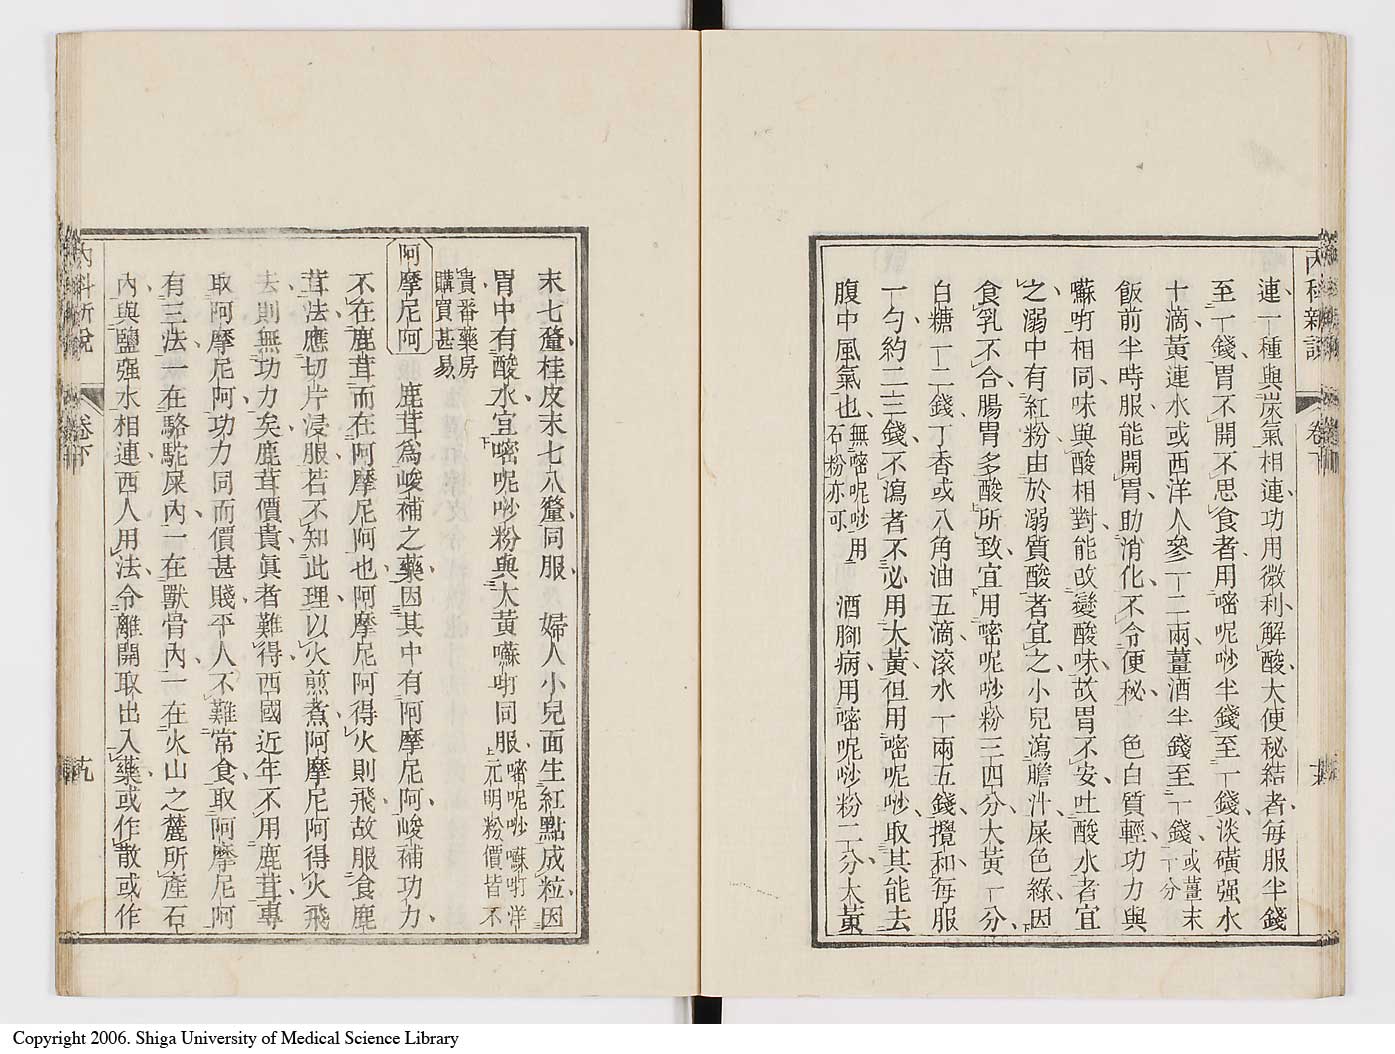 連一種與炭氣相連功用微利解酸大便秘結者每服半錢
至一錢胃不開不思食者用嘧呢𠯿半錢至一錢淡磺强水
十滴黃連水或西洋人參一二兩薑酒半錢至一錢或薑末一分
飯前半時服能開胃助消化不令便秘 色白質輕功力與
嚹𠰃相同味與酸相對能改變酸味故胃不安吐酸水者宜
之溺中有紅粉由於溺質酸者宜之小兒瀉膽汁屎色綠因
食乳不合腸胃多酸所致宜用嘧呢𠯿粉三四分大黃一分
白糖一二錢丁香或八角油五滴滾水一兩五錢攪和每服
一勺約二三錢不瀉者不必用大黃但用嘧呢𠯿取其能去
腹中風氣也無嘧呢𠯿用石粉亦可 酒腳病用嘧呢𠯿粉二分大黃
內科新說 卷下
末七釐桂皮末七八釐同服 婦人小兒面生紅點成粒因
胃中有酸水宜嘧呢𠯿粉與大黃嚹𠰃同服嘧呢𠯿嚹𠰃洋元明粉價皆不
貴番藥房購買甚易
阿摩尼阿 鹿茸爲峻補之藥因其中有阿摩尼阿峻補功力
不在鹿茸而在阿摩尼阿也阿摩尼阿得火則飛故服食鹿
茸法應切片浸服若不知此理以火煎煮阿摩尼阿得火飛
去則無功力矣鹿茸價貴眞者難得西國近年不用鹿茸專
取阿摩尼阿功力同而價甚賤平人不難常食取阿摩尼阿
有三法一在駱駝屎內一在獸骨內一在火山之麓所產石
內與鹽强水相連西人用法令離開取出入藥或作散或作
內科新說 卷下
Copyright 2006. Shiga University of Medical Science Library